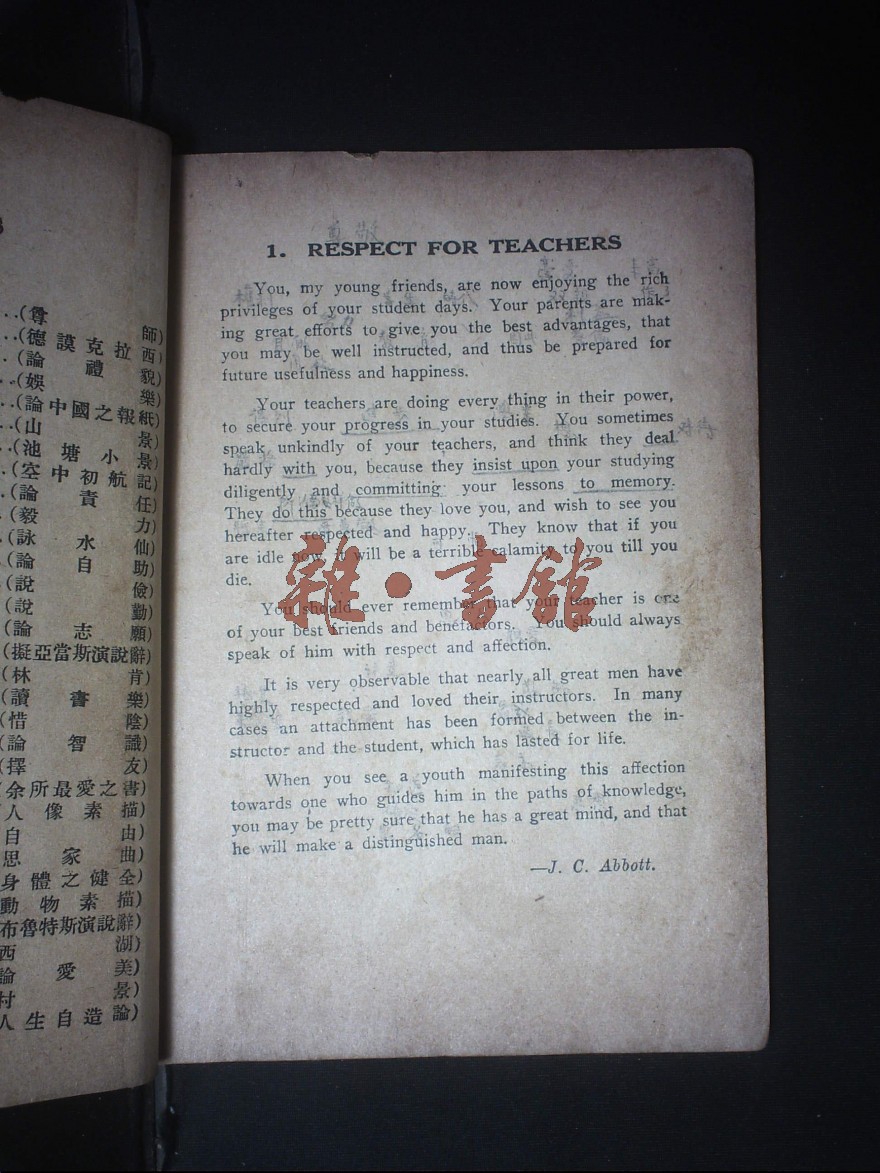 (尊師)
(德謨克拉西)
(論禮貌)
(娛樂)
(論中國之報紙)
(山景)
(池塘小景)
(空中初航記)
(論責任)
(毅力)
(詠水仙)
(論自助)
(說儉)
(說勤)
(論志願)
(擬亞當斯演說辭)
(林肯)
(讀書樂)
(惜陰)
(論智識)
(擇友)
(余所最愛之書)
人像素描)
自由)
思家曲)
身體之健全)
動物素描)
布魯特斯演說辭)
西湖)
論愛美)
村景)
人生自造論)
1. RESPECT FOR TEACHERS
You, my young friends, are now enjoying the rich
privileges of your student days. Your parents are mak-
ing great efforts to give you the best advantages, that
you may be well instructed, and thus be prepared for
future usefulness and happiness.
Your teachers are doing every thing in their power,
to secure your progress in your studies. You sometimes
speak unkindly of your teachers, and think they deal
hardly with you, because they insist upon your studying
diligently and committing your lessons to memory.
They do this because they love you, and wish to see you
hereafter respected and happy. They know that if you
are idle now, it will be a terrible calamity to you till you
die.
You should ever remember that your teacher is one
of your best friends and benefactors. You should always
speak of him with respect and affection.
It is very observable that nearly all great men have
highly respected and loved their instructors. In many
cases an attachment has been formed between the in-
structor and the student, which has lasted for life.
When you see a youth manifesting this affection
towards one who guides him in the paths of knowledge,
you may be pretty sure that he has a great mind, and that
he will make a distinguished man.
—J. C. Abbott.
雜·書館